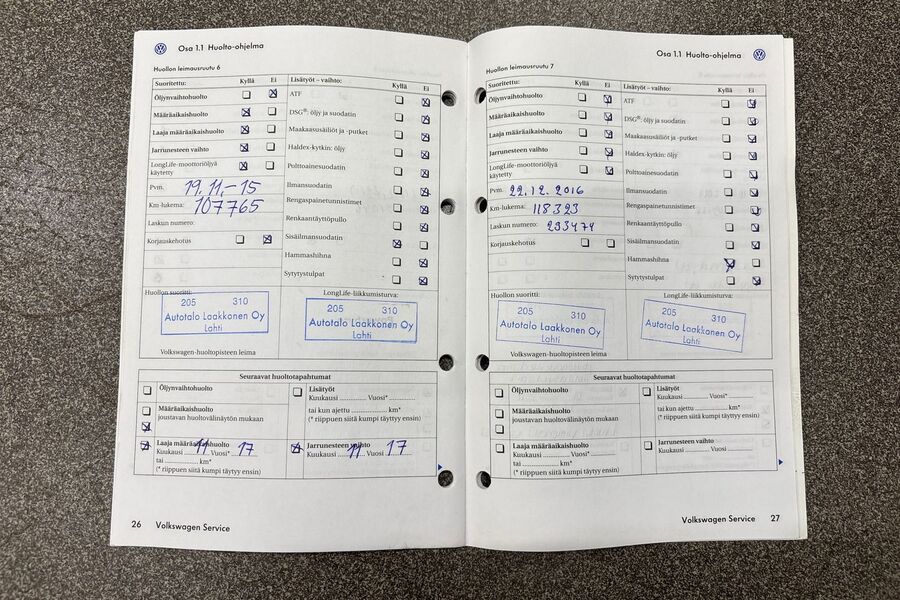 Osa 1.1 Huolto-ohjelma
Huollon leimausruutu 6
Suoritettu: Kyllä Ei
Öljynvaihtohuolto
Määräaikaishuolto
Laaja määräaikaishuolto
Jarrunesteen vaihto
LongLife-moottoriöljyä
käytetty
Pvm. 19.11.-15
Km-lukema: 107765
Laskun numero:
Korjauskehotus
Lisätyöt – vaihto: Kyllä Ei
ATF
DSG®: öljy ja suodatin
Maakaasusäiliöt ja -putket
Haldex-kytkin: öljy
Polttoainesuodatin
Ilmansuodatin
Rengaspainetunnistimet
Renkaantäyttöpullo
Sisäilmansuodatin
Hammashihna
Sytytystulpat
Huollon suoritti:
205 310
Autotalo Laakkonen Oy
Lahti
LongLife-liikkumisturva:
205 310
Autotalo Laakkonen Oy
Lahti
Volkswagen-huoltopisteen leima
Seuraavat huoltotapahtumat
Öljynvaihtohuolto
Määräaikaishuolto
joustavan huoltovälinäytön mukaan
Laaja määräaikaishuolto
Kuukausi 11 Vuosi* 17
tai ............... km*
(* riippuen siitä kumpi täyttyy ensin)
Lisätyöt
Kuukausi ............... Vuosi* ...............
tai kun ajettu ............... km*
(* riippuen siitä kumpi täyttyy ensin)
Jarrunesteen vaihto
Kuukausi 11 Vuosi 17
26 Volkswagen Service
Osa 1.1 Huolto-ohjelma
Huollon leimausruutu 7
Suoritettu: Kyllä Ei
Öljynvaihtohuolto
Määräaikaishuolto
Laaja määräaikaishuolto
Jarrunesteen vaihto
LongLife-moottoriöljyä
käytetty
Pvm. 22.12.2016
Km-lukema: 118323
Laskun numero: 233474
Korjauskehotus
Lisätyöt – vaihto: Kyllä Ei
ATF
DSG®: öljy ja suodatin
Maakaasusäiliöt ja -putket
Haldex-kytkin: öljy
Polttoainesuodatin
Ilmansuodatin
Rengaspainetunnistimet
Renkaantäyttöpullo
Sisäilmansuodatin
Hammashihna
Sytytystulpat
Huollon suoritti:
205 310
Autotalo Laakkonen Oy
Lahti
LongLife-liikkumisturva:
205 310
Autotalo Laakkonen Oy
Lahti
Volkswagen-huoltopisteen leima
Seuraavat huoltotapahtumat
Öljynvaihtohuolto
Määräaikaishuolto
joustavan huoltovälinäytön mukaan
Laaja määräaikaishuolto
Kuukausi ............... Vuosi* ...............
tai ............... km*
(* riippuen siitä kumpi täyttyy ensin)
Lisätyöt
Kuukausi ............... Vuosi* ...............
tai kun ajettu ............... km*
(* riippuen siitä kumpi täyttyy ensin)
Jarrunesteen vaihto
Kuukausi ............... Vuosi ...............
Volkswagen Service 27